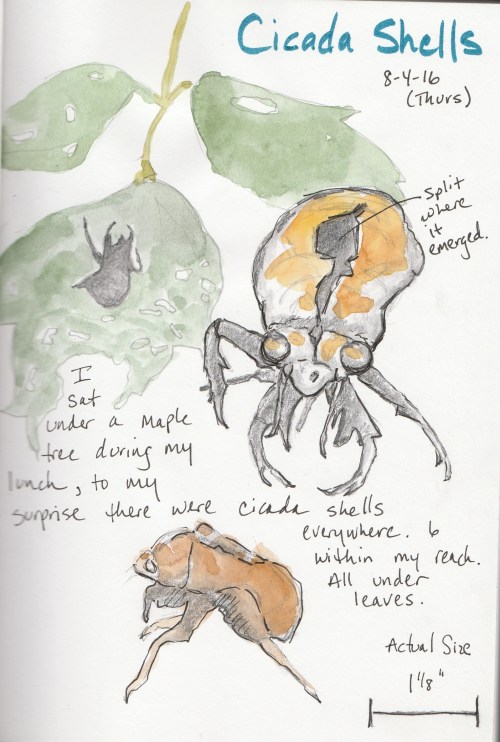 Cicada Shells
8-4-16
(Thurs)
split
where
it
emerged.
I
sat
under a maple
tree during my
lunch, to my
surprise there were cicada shells
everywhere. 6
within my reach.
All under
leaves.
Actual Size
1 1/8"